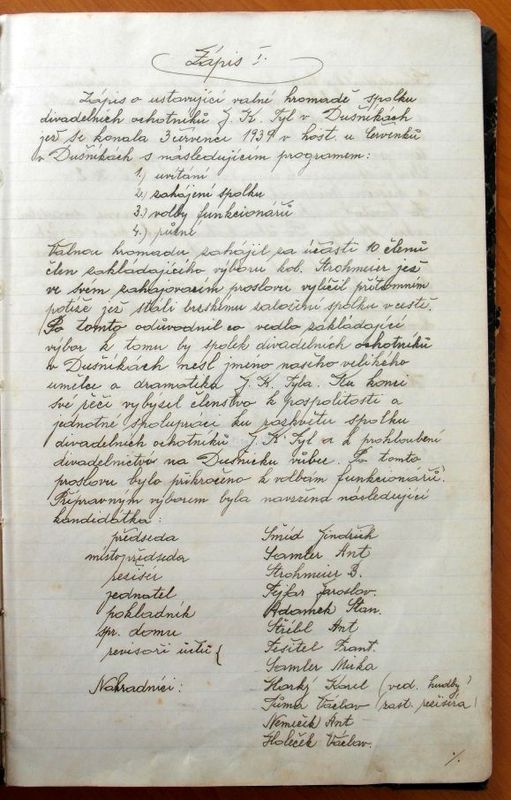 Zápis I.
Zápis o ustavující valné hromadě spolku
divadelních ochotníků J. K. Tyl v Dušníkách
jež se konala 3 července 1939 v host. u Červenků
v Dušníkách s následujícím programem:
1.) uvítání
2.) zahájení spolku
3.) volby funkcionářů
4.) různé
Valnou hromadu zahájil za účasti 10 členů
člen zakládajícího výboru kol. Strohmeier jež
ve svém zahajovacím proslovu vylíčil přítomným
potíže jež stáli brzkému založení spolku v cestě.
Po tomto odůvodnil co vedlo zakládající
výbor k tomu by spolek divadelních ochotníků
v Dušníkách nesl jméno našeho velikého
umělce a dramatika J. K. Tyla. Ku konci
své řeči vybýzel členstvo k pospolitosti a
jednotné spolupráci ku rozkvětu spolku
divadelních ochotníků J. K. Tyl a k prohloubení
divadelnictví na Dušnicku vůbec. Po tomto
proslovu bylo přikročeno k volbám funkcionářů.
Přípravným výborem byla navržena následující
kandidátka:
předseda Šmíd Jindřich
místopředseda Samler Ant
režiser Strohmeier B.
jednatel Fejfar Jaroslav.
pokladník Adamek Stan.
spr. domu Stříbl Ant
revisoři účtů { Fišitel Frant.
Samler Mirka
Náhradníci: Horký Karel (ved. hudby)
Tůma Václav (zast. režiséra)
Němeček Ant
Holeček Václav.
./.